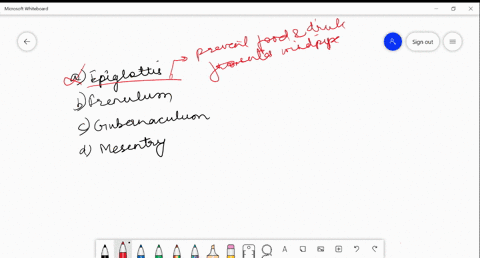 Microsoft Whiteboard
Sign out
prevent food & drink
to enter windpipe
a) Epiglottis
b) Frenulum
c) Gubernaculum
d) Mesentry